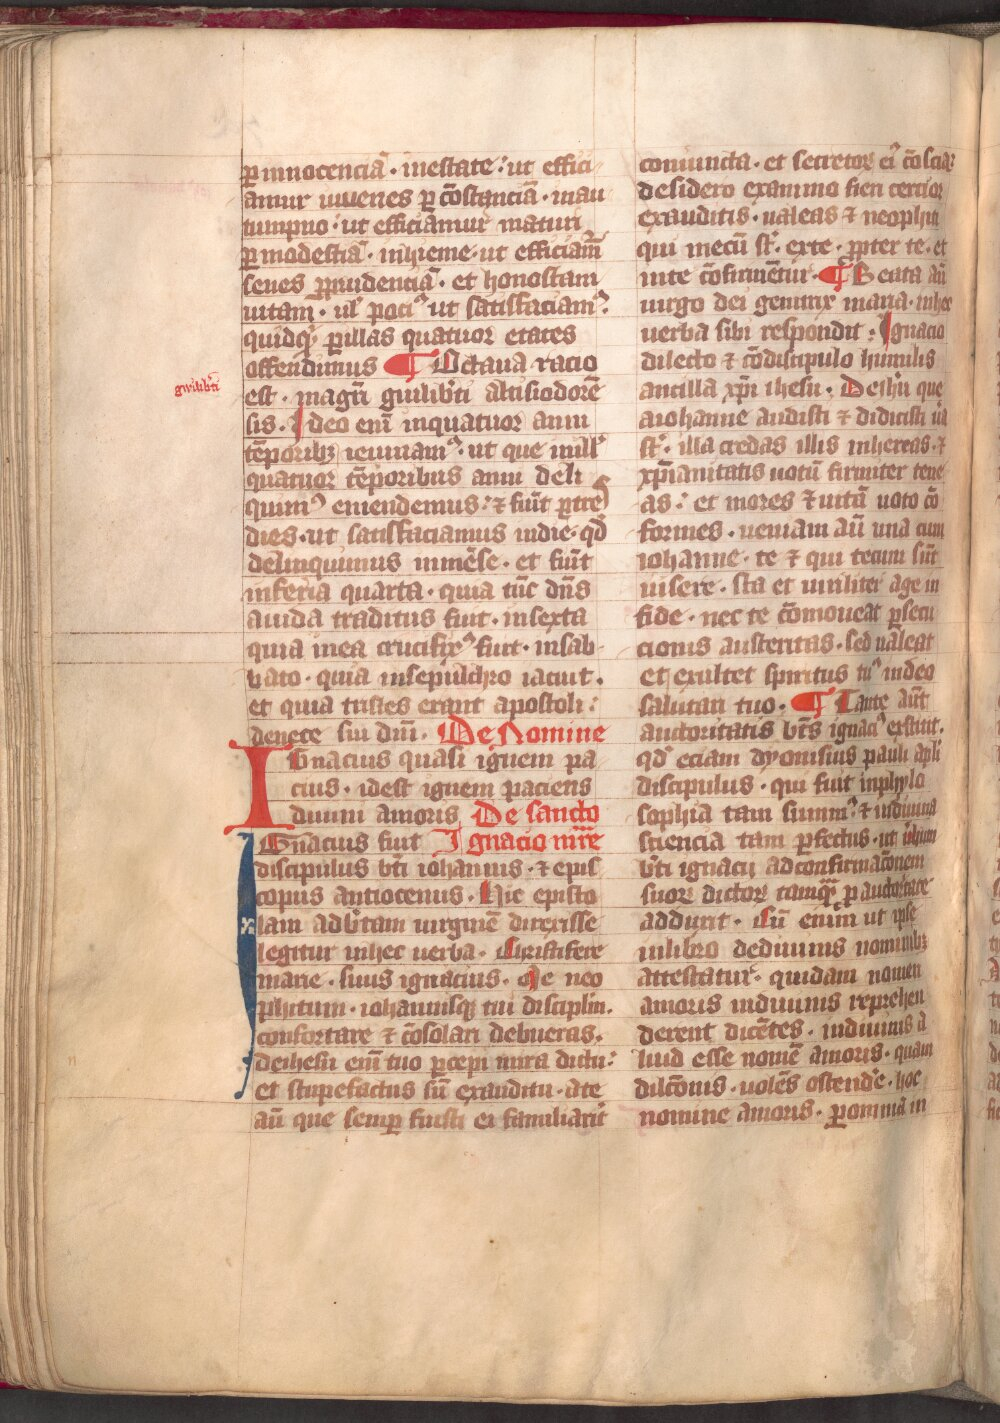 p innocenciā · inestate · ut effici
amur iuuenes p cōstanciā · inau
tumpno · ut efficiamur maturi
p modestiā · inhieme · ut efficiam̄
senes p prudenciā · et honostam
uitam · ul' poci᷒ ut satisfaciam᷒
quidq᷒ p illas quatuor etates
offendimus ¶ Octaua racio
guilib'ti
est · magr̄i guilib'ti altisiodorē
sis · Ideo eni᷒ inquatuor anni
tēporibꝫ ieiunam᷒ · ut que in ill'
quatuor tēporibus anni deli
quim᷒ emendemus · ⁊ fiūt p tres
dies · ut satisfaciamus indie · qd̄
delinquimus inmēse · et fiūt
inferia quarta · quia tūc dn̄s
aiuda traditus fuit · insexta
quia inea crucifix᷒ fuit · insab
bato · quia insepulchro iacuit ·
et quia tristes erant apostoli ·
denece sui dn̄i · De Nomine
IGnacius quasi ignem pa
cius · idest ignem paciens
diuini amoris De sancto
IGnacius fuit Ignacio mr̄e
discipulus bt̄i iohannis · ⁊ epis
copus antiocenus · Hic episto
lam ad b'tam uirginē direxisse
legitur inhec uerba · Christifere
marie · suus ignacius · Me neo
phitum · iohannisqꝫ tui disciplm̄ ·
confortare ⁊ cōsolari debueras ·
deihesu eni᷒ tuo p cepi mira dictu ·
et stupefactus sū exauditu · ate
aū que semp fuisti ei familiarit̄
coniuncta · et secretoꝝ ei᷒ cōscia ·
desidero exanimo fieri cercior
exauditis · ualeas ⁊ neophiti
qui mecū st̄ · exte · p pter te · et
inte cōfirmētur · ¶ Beata aū
uirgo dei genitrix maria · inhec
uerba sibi respondit · Ignacio
dilecto ⁊ cōdiscipulo humilis
ancilla xp̄i ihesu · De ih'u que
aiohanne audisti ⁊ didicisti ua
st̄ · illa credas illis inhereas · ⁊
xp̄ianitatis uotū firmiter tene
as · et mores ⁊ uitā uoto cō
formes · ueniam aū una cum
iohanne · te ⁊ qui tecum sūt
uisere · sta et uiriliter age in
fide · nec te cōmoueat p secu
cionis austeritas · sed ualeat
et exultet spiritus tu᷒ indeo
salutari tuo · ¶ Tante aūt
auctoritatis bt̄s ignaci᷒ exstitit ·
qd̄ eciam dyonisius pauli apl'i
discipulus · qui fuit inphylo
sophia tam summ᷒ · ⁊ indiuina
sciencia tam p fectus · ut
bt̄i ignacij adconfirmacōnem
suoꝝ dictoꝝ tamqꝫ p auctoritate
addunt · Cū enim ut ipse
inlibro dediuinis nominibꝫ
attestatur · quidam nomen
amoris indiuinis reprehen
derent dicētes · indiuinis a
liud esse nomē amoris · quam
dilc̄onis · uolēs ostend'e · hoc
nomine amoris · p omnia in